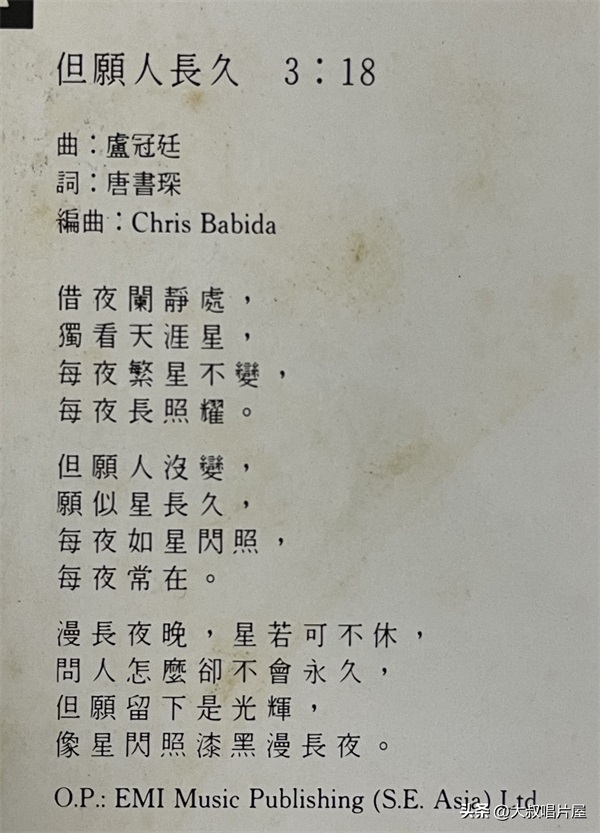 但願人長久 3:18
曲:盧冠廷
詞:唐書琛
編曲:Chris Babida
借夜闌靜處,
獨看天涯星,
每夜繁星不變,
每夜長照耀。
但願人沒變,
願似星長久,
每夜如星閃照,
每夜常在。
漫長夜晚,星若可不休,
問人怎麼卻不會永久,
但願留下是光輝,
像星閃照漆黑漫長夜。
O.P.: EMI Music Publishing (S.E. Asia) Ltd.
头条 @大叔唱片屋